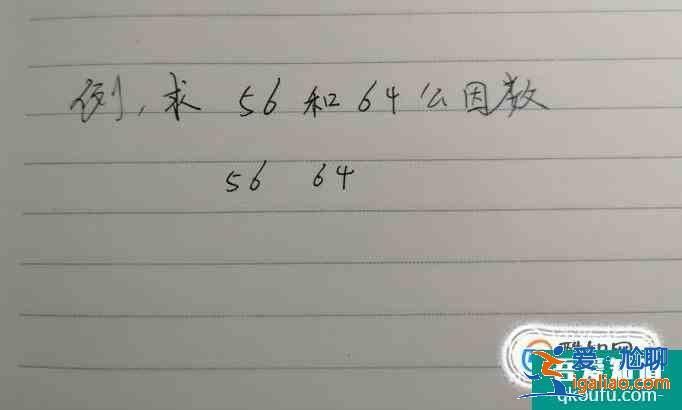 例，求 56 和 64 公因数
56 64
爱·尬聊
igaliao.com
qkoufu.com